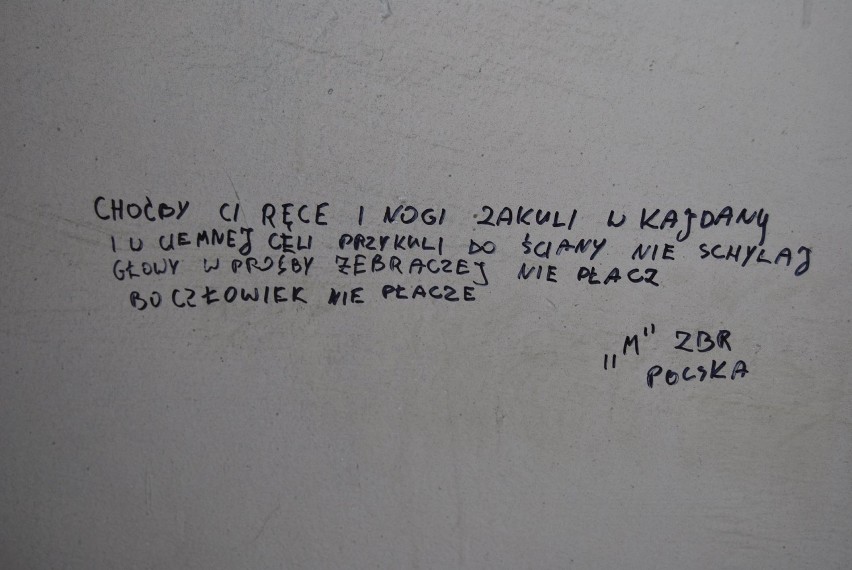 CHOĆBY CI RĘCE I NOGI ZAKULI W KAJDANY
I W CIEMNEJ CELI PRZYKULI DO ŚCIANY NIE SCHYLAJ
GŁOWY W PROŚBY ŻEBRACZEJ NIE PŁACZ
BO CZŁOWIEK NIE PŁACZE
„M" ZBR
POLSKA